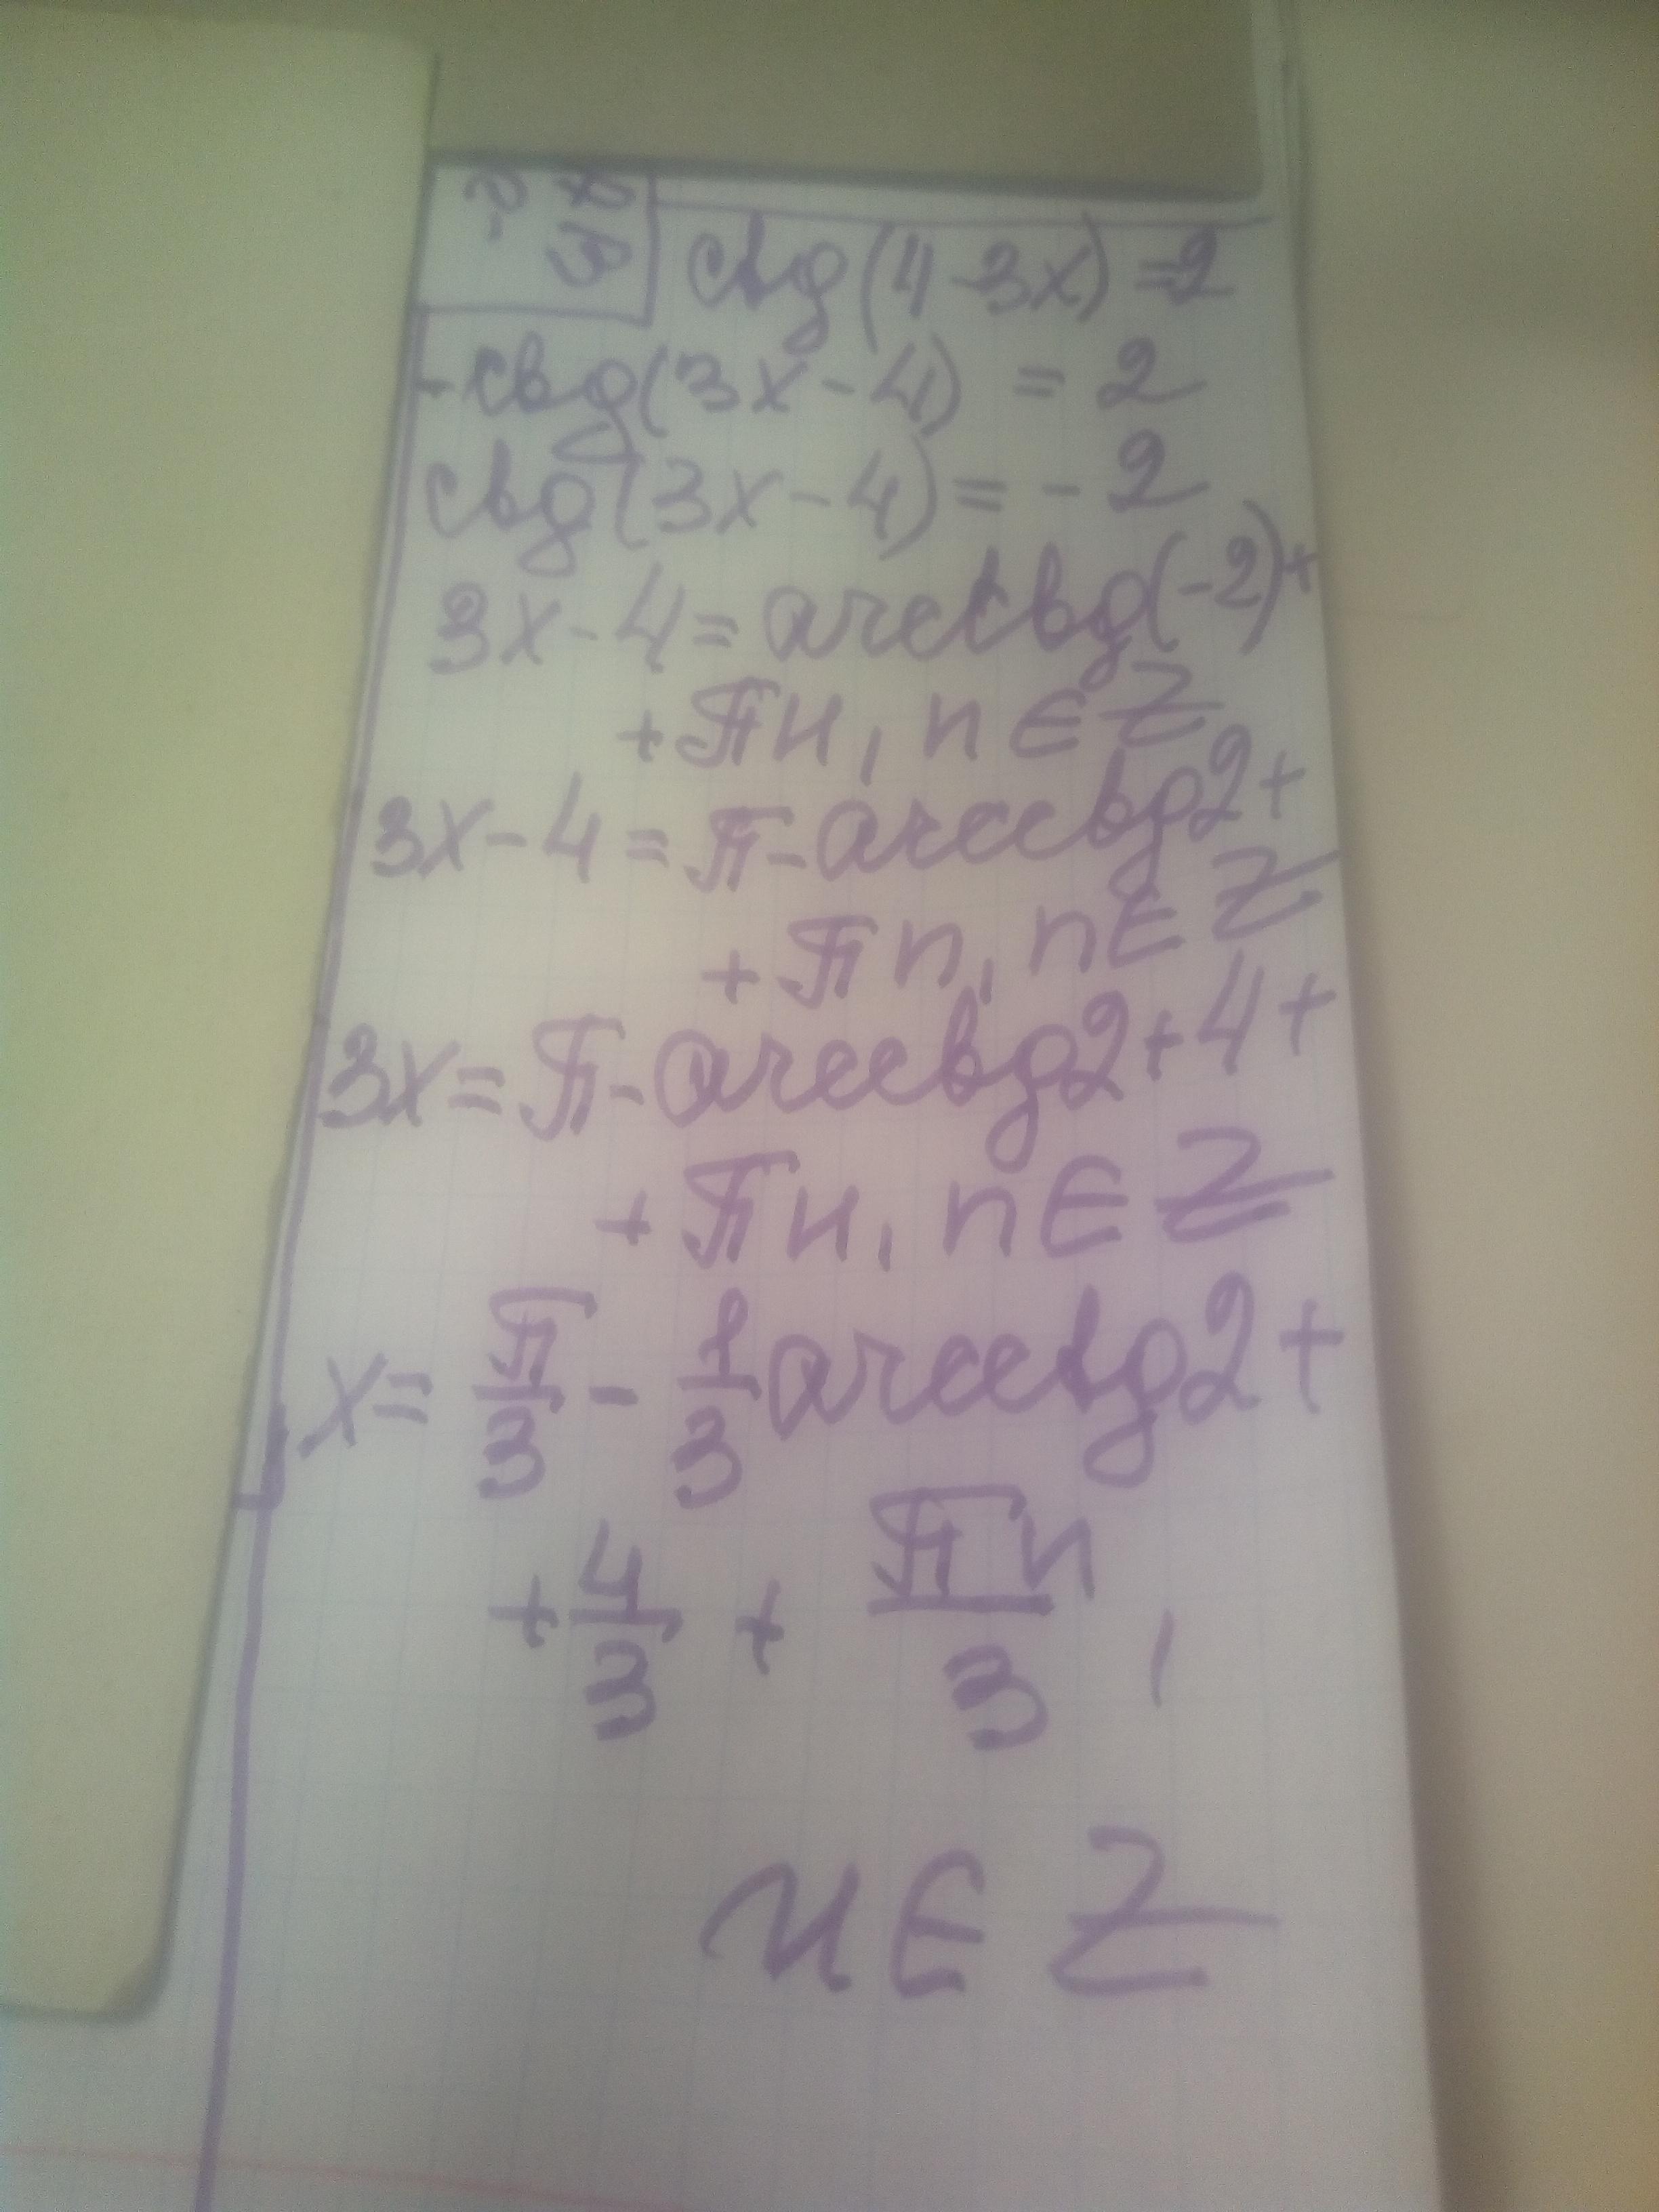 ctg(4-3x)=2
-ctg(3x-4) = 2
ctg(3x-4)=-2
3x-4=arcctg(-2)+
+πn, n∈Z
3x-4=π-arcctg2+
+πn, n∈Z
3x=π-arcctg2+4+
+πn, n∈Z
x=π/3-1/3arcctg2+
+4/3+πn/3,
n∈Z